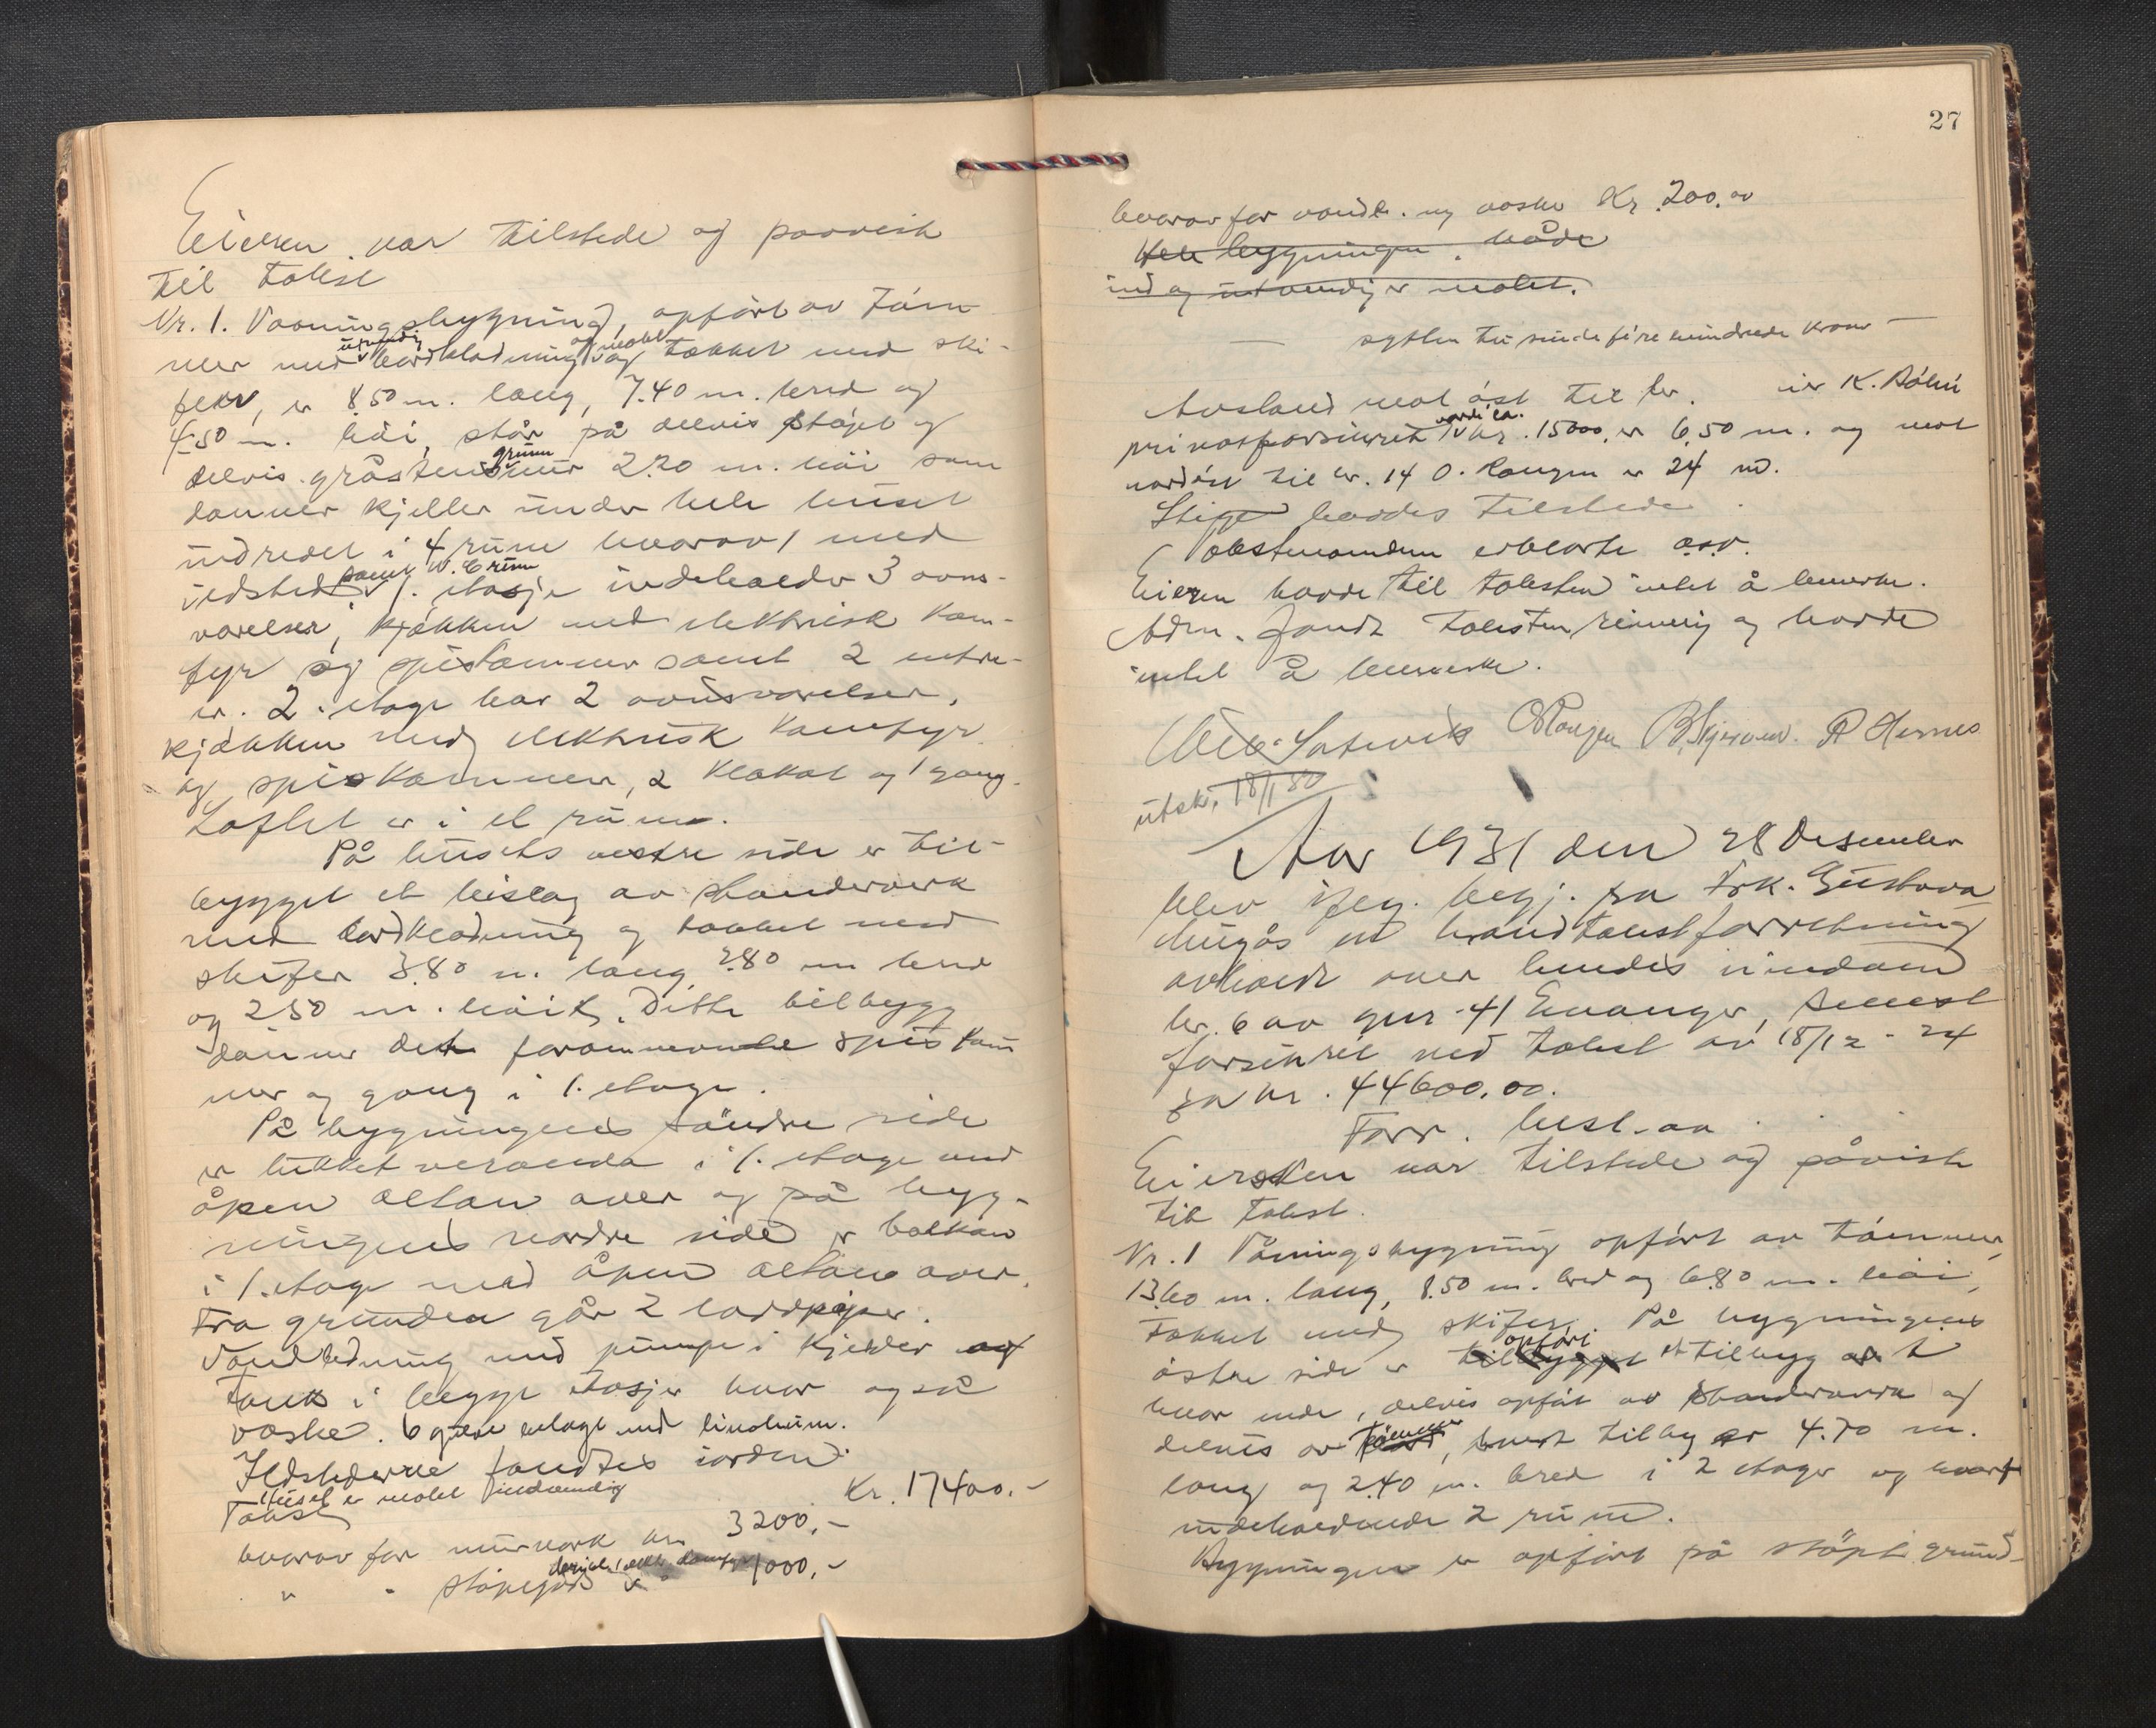 Eieren var tilstede og paaviste
til takst
Nr. 1. Vaaningsbygning, opført av tøm-
mer med utvendig bordklædning og malet og tækket med ski-
fer, er 8.50 m. lang, 7.40 m. bred og
4.50 m. høi, står på delvis støpt og
delvis gråstens grunnmur 2.20 m. høi som
danner kjeller under hele huset
indredet i 4 rum hvorav 1 med
ildsted samt W.C rum 1. etasje indeholder 3 ovns-
værelser, kjøkken med elektrisk kom-
fyr og spiskammer samt 2 entre-
er. 2. etage har 2 ovnsværelser,
kjøkken med elektrisk komfyr
og spiskammer, 2 klokot og 1 gang.
Loftet er i et rum.
På husets vestre side er til-
bygget et bislag av standerverk
med bordklædning og tækket med
skifer 3.80 m. lang, 2.80 m bred
og 2.50 m. høit. Dette tilbygg
danner det forannevnte spiskam
mer og gang i 1. etage.
På bygningens søndre side
er lukket veranda i 1. etage med
åpen altan over og på byg-
ningens nordre side er balkon
i 1. etage med åpen altan over.
Fra grunden går 2 lordpiper.
Vandledning med pumpe i kjelder og
tank i begge etasjer hvor også
vaske. 6 gulve belagt med linoleum.
Ildstederne fandtes iorden.
Huset er malet indvendig
Takst Kr. 17400.-
hvorav for murverk kr. 3200,-
" " støpegods derivbl. elekt. komfyr " 1000,-
27
hvorav for vandl. og vaske Kr. 200.00
Hele bygningen både
ind og utvendig er malet.
— sytten tusinde fire hundrede kroner —
Avstand mot øst til br. eier K. Bølni
privatforsikret værdi ca. kr. 15000, er 6.50 m. og mot
nordøst til br. 14 O. Rangen er 24 m.
Stige havdes tilstede.
Takstmændene erklærte osv.
Eieren havde til taksten intet å bemerke.
Adm. fandt taksten rimelig og havde
intet å bemerke.
O Rangen R Hernes
utskr. 18/1 80
Aar 1931 den 28 Desember
blev ifølg. begj. fra Frk. Gustava
Mugås en brandtakstforretning
avholdt over hendes eiendom
br. 6 av gnr. 41 Evanger, senest
forsikret ved takst av 18/12 - 24
for kr. 44600.00.
Forr. best. av
Eiersken var tilstede og påviste
til takst.
Nr. 1 Våningsbygning opført av tømmer,
13.60 m. lang, 8.50 m. bred og 6.80 m. høi,
tækket med skifer. På bygningens
østre side er tilbygget opført et tilbyg i
hver ende, delvis opført av standerverk og
delvis av tømmer, hvert tilbyg er 4.70 m.
lang og 2.40 m. bred i 2 etager og hvert
indeholdende 2 rum.
Bygningen er opført på støpt grund-